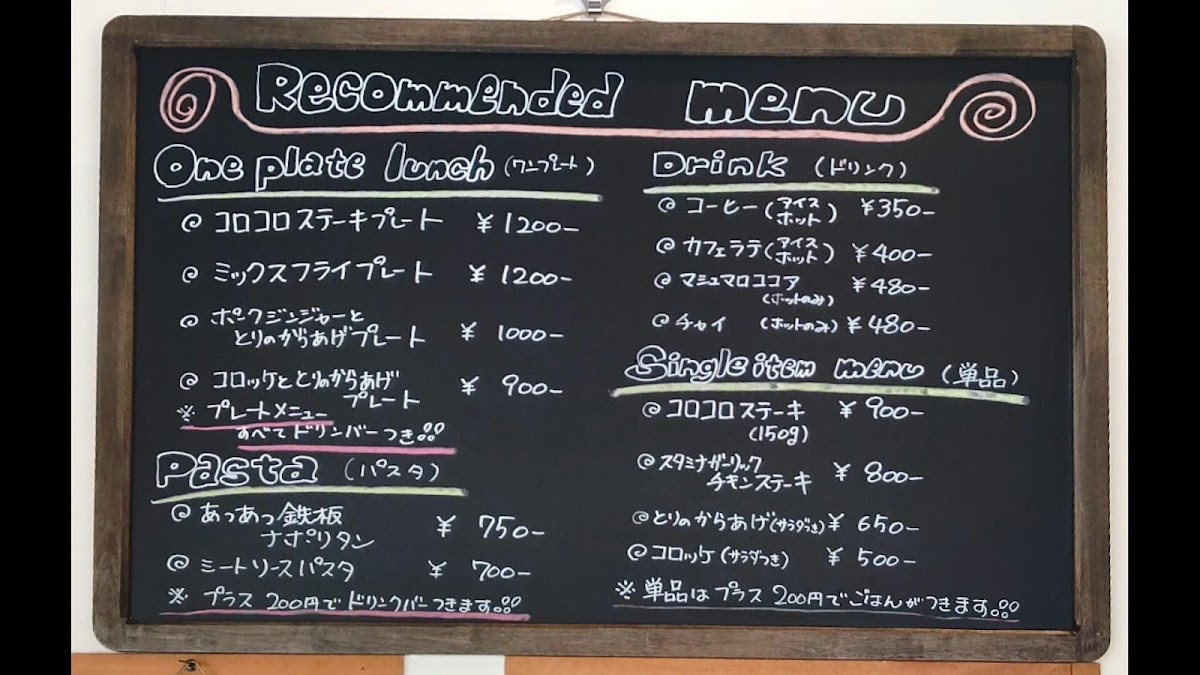 Recommended menu
One plate lunch (ワンプレート)
@ コロコロステーキプレート ¥1200-
@ ミックスフライプレート ¥1200-
@ ポークジンジャーと
とりのからあげプレート ¥1000-
@ コロッケととりのからあげ
プレート ¥900-
※ プレートメニュー
すべてドリンバーつき。
Pasta (パスタ)
@ あっあっ鉄板
ナポリタン ¥750-
@ ミートソースパスタ ¥700-
※ プラス200円でドリンクバーつきます。
Drink (ドリンク)
@ コーヒー(アイス
ホット) ¥350-
@ カフェラテ(アイス
ホット) ¥400-
@ マシュマロココア
(ホットのみ) ¥480-
@ チャイ (ホットのみ) ¥480-
Single item menu (単品)
@ コロコロステーキ
(150g) ¥900-
@ スタミナガーリック
チキンステーキ ¥800-
@ とりのからあげ(サラダつき) ¥650-
@ コロッケ(サラダつき) ¥500-
※ 単品はプラス200円でごはんがつきます。